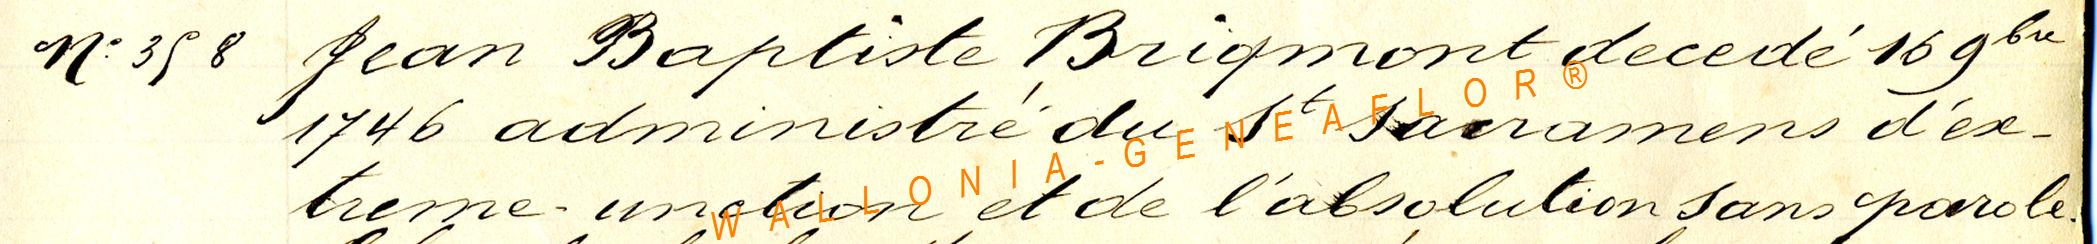 N° 358 Jean Baptiste Briqmont decedé 16 9bre
1746 administré du St Sacramens d'ex-
treme-unction et de l'absolution sans parole.
WALLONIA-GENEAFLOR®